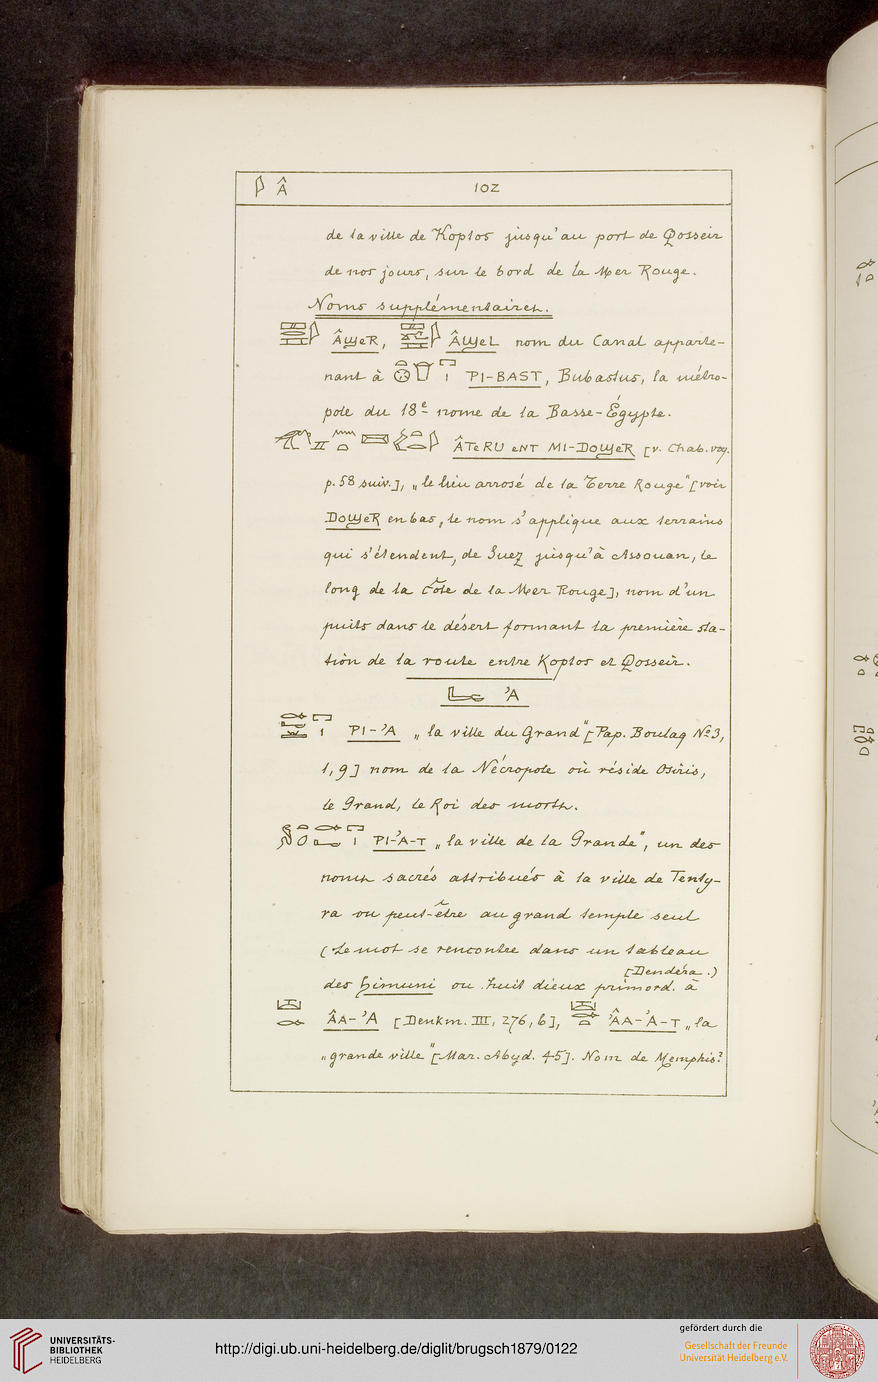 𓇋 Â 102
de la ville de Koptos jusqu'au port de Qosseir
de nos jours, sur le bord de la Mer Rouge.
Noms supplémentaires.
ÂϢeR, ÂϢeL nom du Canal apparte-
nant à PI-BAST, Bubastus, la métro-
pole du 18e nome de la Basse-Égypte.
ÂTeRU eNT MI-DOϢeR [v. Chab. voy.
p. 58 suiv.], „le lieu arrosé de la Terre Rouge" [voir
DOϢeR en bas, le nom s'applique aux terrains
qui s'étendent, de Suez jusqu'à Assouan, le
long de la côte de la Mer Rouge], nom d'un
puits dans le désert formant la première sta-
tion de la route entre Koptos et Qosseir.
'A
PI-'A „la ville du Grand" [Pap. Boulaq No 3,
1, 9] nom de la Nécropole où réside Osiris,
le Grand, le Roi des morts.
PI-'A-T „la ville de la Grande", un des
noms sacrés attribués à la ville de Tenty-
ra ou peut-être au grand temple seul
(Le mot se rencontre dans un tableau
[Dendéra.)
des Himuni ou huit dieux primord. à
ÂA-'A [Denkm. III, 276, b], 'ÂA-'A-T „la
„grande ville" [Mar. Abyd. 45]. Nom de Memphis?
UNIVERSITÄTS-
BIBLIOTHEK
HEIDELBERG
http://digi.ub.uni-heidelberg.de/diglit/brugsch1879/0122
gefördert durch die
Gesellschaft der Freunde
Universität Heidelberg e.V.